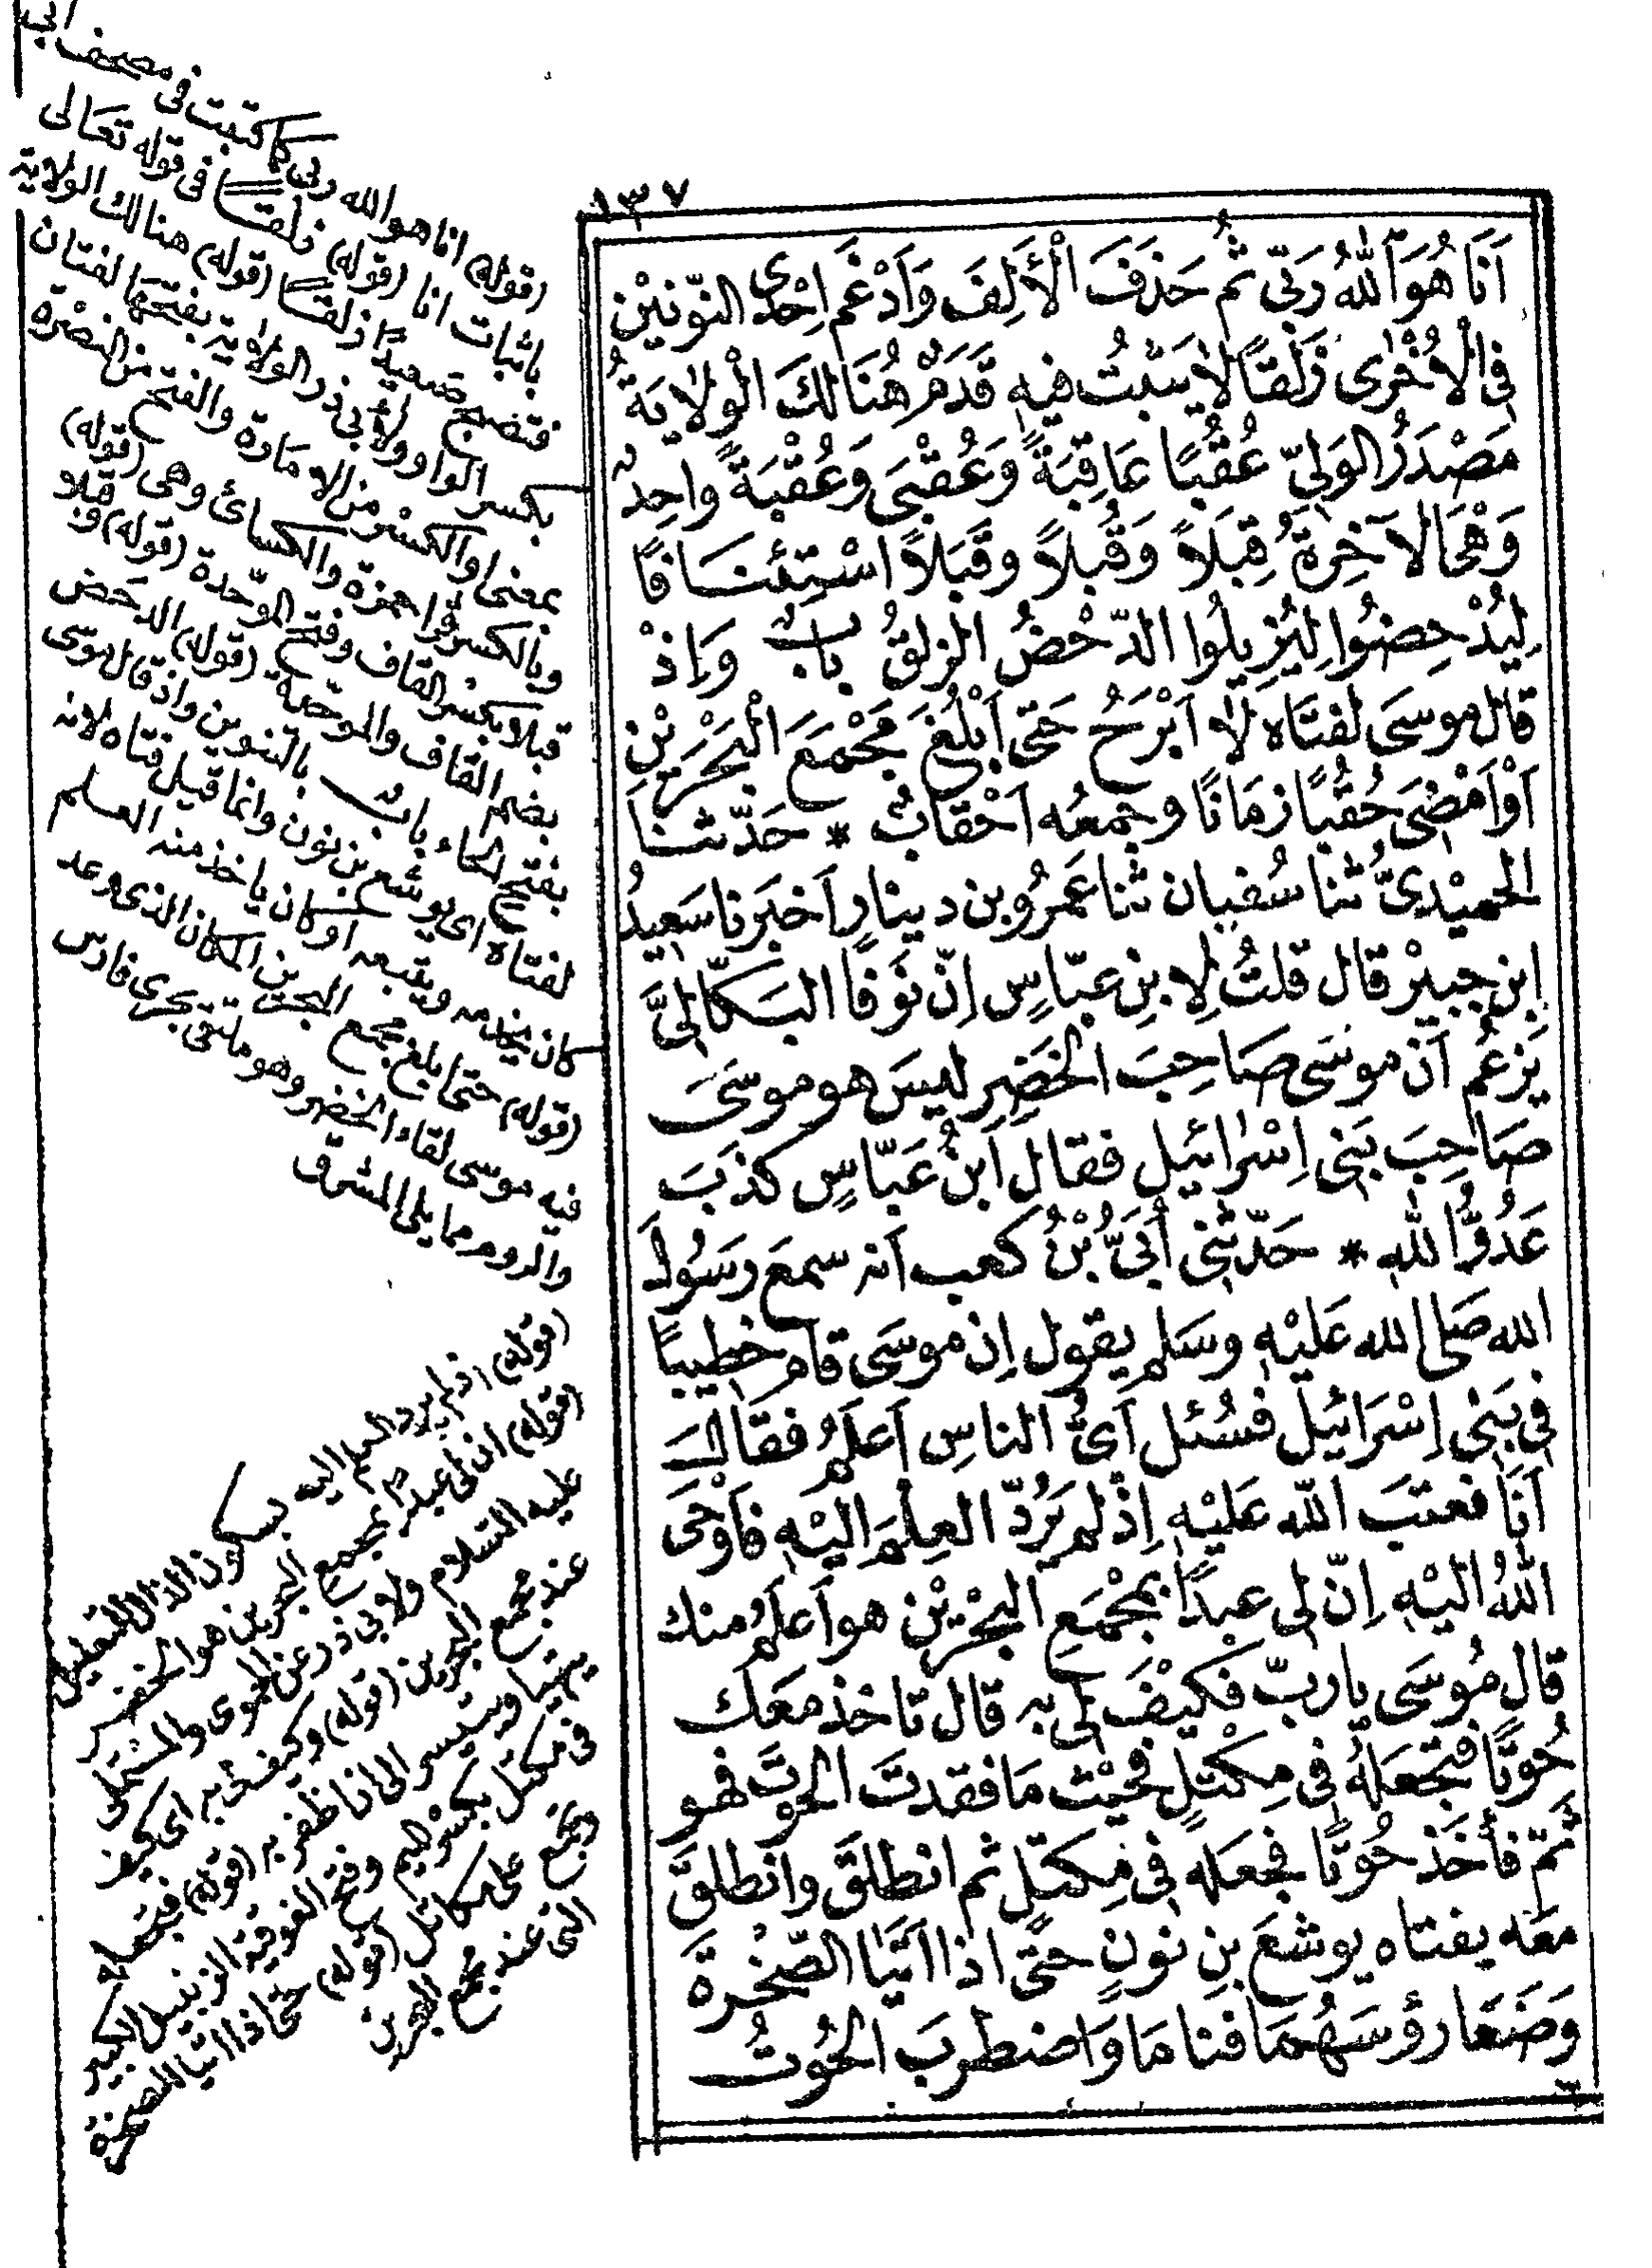 ١٣٧
اَنَا هُوَ اللهُ رَبِّى ثُمَّ حَذَفَ الْأَلِفَ وَاَدْغَمَ اِحْدَى النّونَيْنِ
فِى الْاُخْرٰى زَلَقًا لاٰ يَثْبُتُ فيهِ قَدَمٌ هُنَالِكَ الْوَلاٰيَةُ
مَصْدَرُ الوَلِىّ عُقُبًا عَاقِبَةً وَعُقْبَى وَعُقْبَةً واحِدٌ
وَهْىَ الاٰخِرَةُ قِبَلاً وَقُبُلاً وقَبَلاً اسْتِئنَافًا
لِيُدْحِضُوا لِيُزِيلُوا الدّحْضُ الزلقُ بابٌ وَاِذْ
قال موسَى لفتَاه لاٰ اَبْرَحُ حَتّى اَبْلُغَ مَجْمَعَ الْبَحْرَيْنِ
اَوْاَمْضِىَ حُقُبًا زمَانًا وجمعُه اَحْقَابٌ * حَدّثنَا
الحميْدِىُّ ثنا سُفيان ثنا عَمرُو بن دينارٍ اَخبَرنا سَعِيدُ
ابن جبيرْ قال قلتُ لِابنِ عبّاسٍ اِنّ نَوْفا البَكّالِىَّ
يَزعُم اَنّ موسَى صَاحِبَ الخَضِر ليسَ هو موسَى
صَاحِبَ بَنِى اِسْرائيل فقال اَبنُ عَبّاسٍ كذَبَ
عَدُوُّ اللهِ * حَدّثنِى اُبَىُّ بْنُ كعب اَنه سمعَ رَسُولَ
الله صَلى الله عَليْهِ وسَلم يقول اِن موسَى قامَ خطيبًا
فِى بَنِى اِسْرَائيلَ فسُئل اَىُّ الناسِ اَعلمُ فقَالَ
اَنَا فعتَبَ اللّه عَليْهِ اِذْ لم يَرُدّ العِلمَ اليْهِ فاَوْحَى
اللهُ اليْهِ اِنّ لى عبدًا بمجْمَعِ البَحْرَيْنِ هو اَعلمُ منك
قال مُوسَى يارَبّ فكيْفَ لِى به قال تاخذ معَك
حُوتًا فتجْعَلهُ فى مِكتَلٍ فحيْث مَا فقدتَ الحُوتَ فهو
ثَمّ فأخَذ حُوتًا فجعَله فى مِكتَلٍ ثم انطلقَ وانطلقَ
معَه بفتاه يوشعَ بنِ نونٍ حتّى اذا اَتَيَا الصّخْرةَ
وَضَعَا رؤسَهُمَا فنامَا وَاضطربَ الحُوتُ
(قوله) انا هو الله ربى كما كتبت فى مصحف ابى
باثبات انا (قوله) زلقا فى قوله تعالى
فتصبح صعيدًا زلقا (قوله) هنالك الولاية
بكسر الواو ولابى ذر الولاية بفتحها لغتان
بمعنى او الكسر من الامارة والفتح من النصرة
وبالكسر قرا حمزة والكسائ وهى (قوله)
قبلا بكسر القاف وفتح الموحّدة (قوله) وقبلا
بضم القاف والموحّدة (قوله) الدحض
بفتح الحاء باب بالتنوين واذ قال موسى
لفتاه اى يوشع بن نون وانما قيل فتاه لانه
كان يخدمه ويتبعه او كان ياخذ منه العلم
(قوله) حتى ابلغ مجمع البحرين المكان الذى وعد
فيه موسى لقاء الخضر وهو ملتقى بحرى فارس
والروم مما يلى المشرق
(قوله) اذ لم يرد العلم اليه بسكون الذال للتعليل
(قوله) ان لى عبدا بمجمع البحرين هو الخضر
عليه السّلام ولابى ذر عن الحموى والمستملى
عند مجمع البحرين (قوله) وكيف لى به اى كيف
يتهيا ويتيسر الى ان اظفر به (قوله) فتجعله
فى مكتل بكسر الميم وفتح الفوقية الزنبيل الكبير
ويجمع على مكاتل (قوله) حتى اذا اتيا الصخرة
التى عند مجمع البحرين